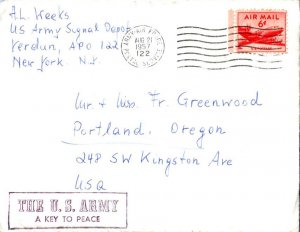 A.L. Weeks
US Army Signal Depot
Verdun, APO 122
New York. N.Y.
AUG 21
1957
122
AIR MAIL
6¢
Mr + Miss. Fr. Greenwood
Portland, Oregon
248 SW Kingston Ave
USA
THE U. S. ARMY
A KEY TO PEACE